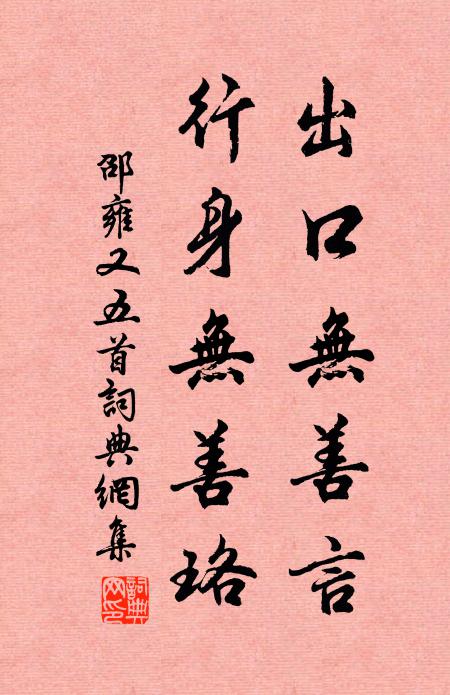 出口無善言
行身無善珞
邵雍又五首詞典網集
詞典網印